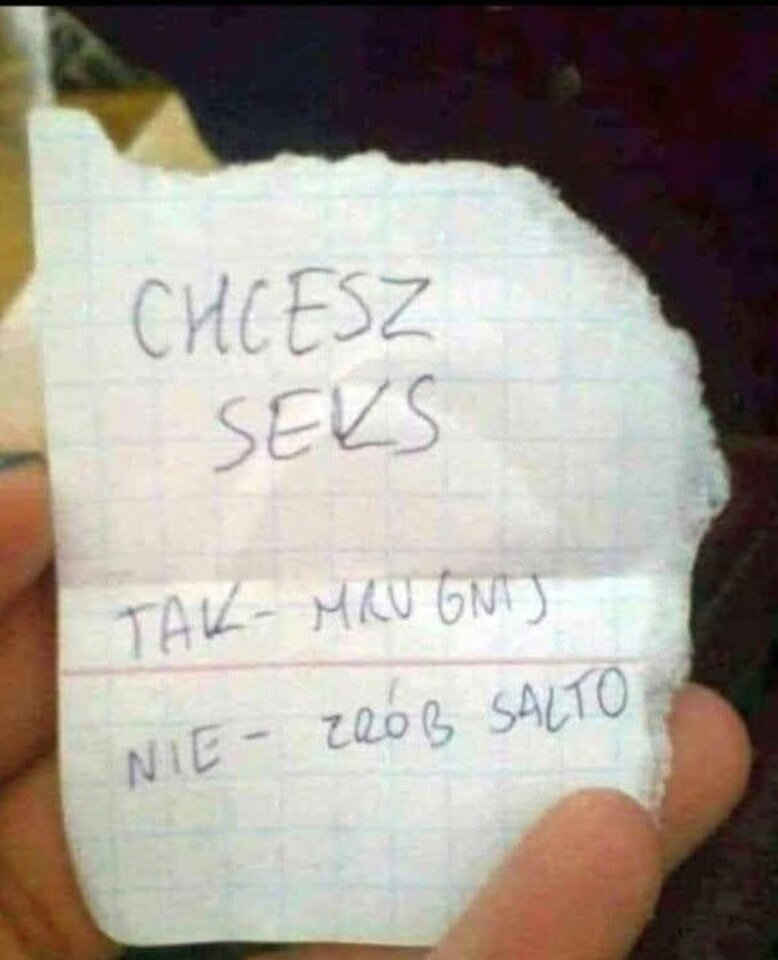 CHCESZ
SEKS
TAK - MRUGNIJ
NIE - ZRÓB SALTO